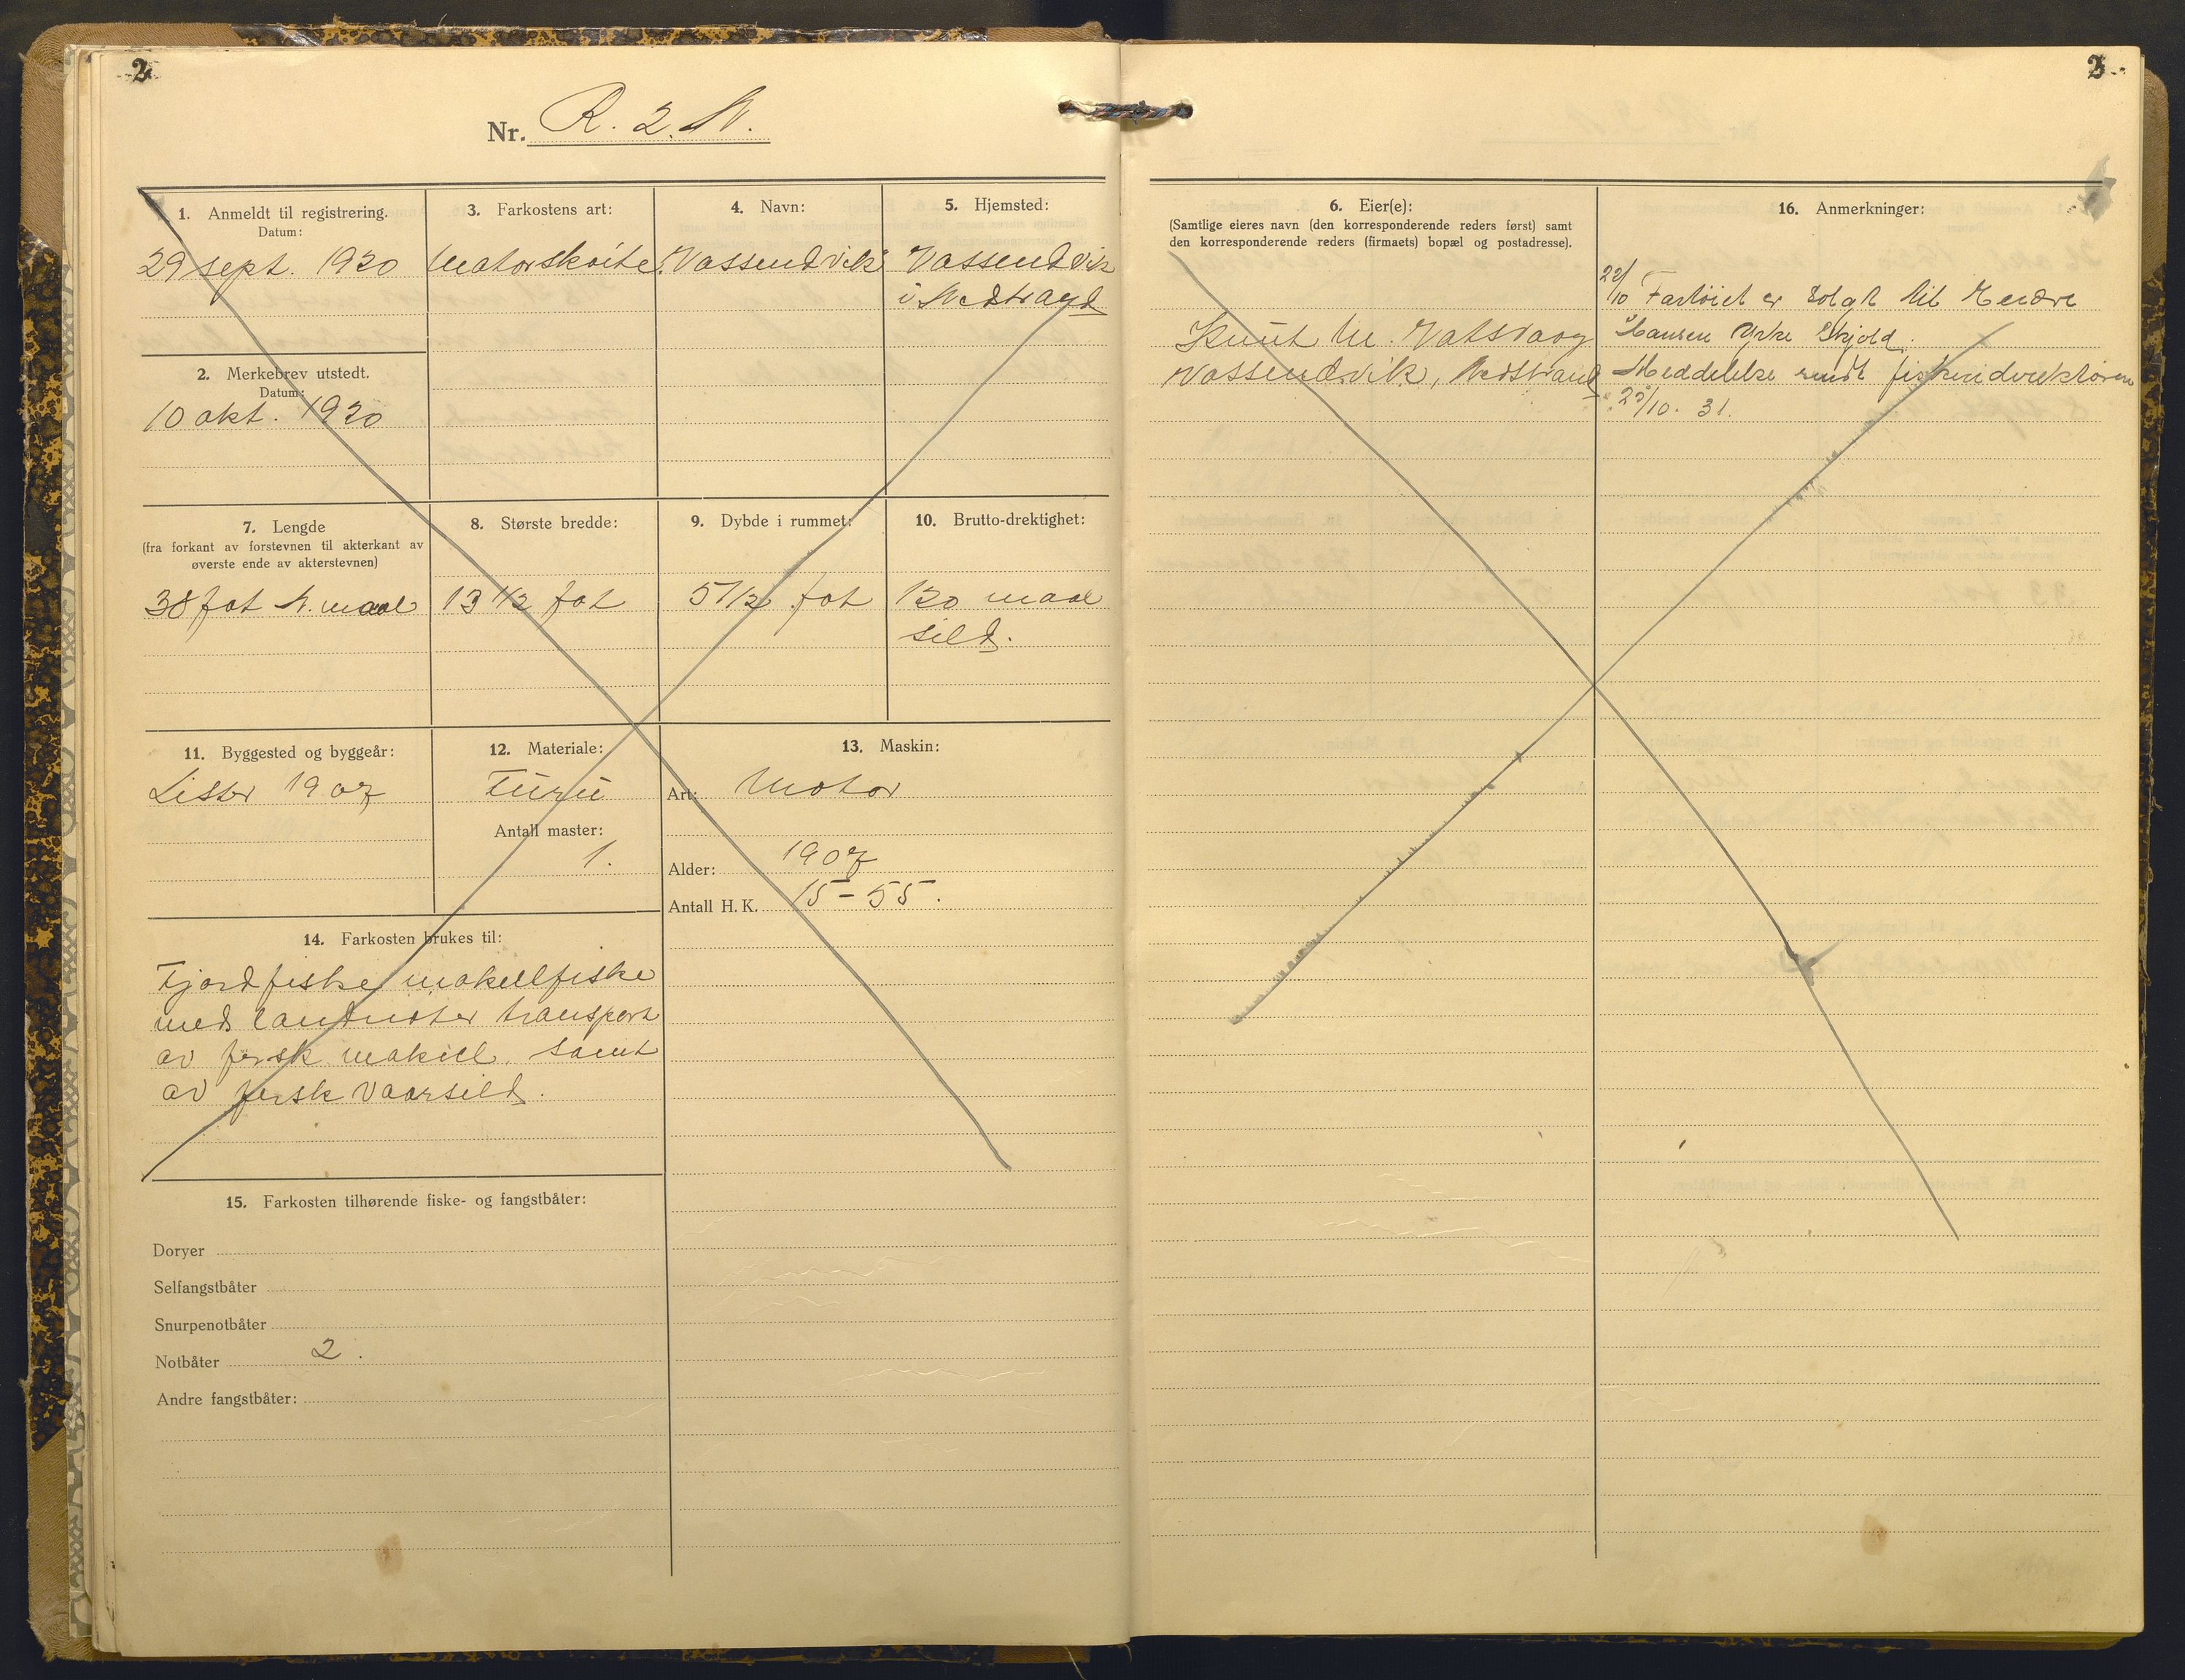 2
Nr. R. 2. N.
1. Anmeldt til registrering.
Datum:
29 sept. 1920
2. Merkebrev utstedt.
Datum:
10 okt. 1920
3. Farkostens art:
Motorskøite
4. Navn:
Vassendvik
5. Hjemsted:
Vassendvik
i Nedstrand
7. Lengde
(fra forkant av forstevnen til akterkant av
øverste ende av akterstevnen)
38 fot N. maal
8. Største bredde:
13 1/2 fot
9. Dybde i rummet:
5 1/2 fot
10. Brutto-drektighet:
120 maal
sild.
11. Byggested og byggeår:
Lister 1907
12. Materiale:
Furu
Antall master:
1.
13. Maskin:
Art: Motor
Alder: 1907
Antall H. K. 15-55.
14. Farkosten brukes til:
Fjordfiske makrelfiske
med landnoter transport
av fersk makrel samt
av fersk vaarsild.
15. Farkosten tilhørende fiske- og fangstbåter:
Doryer
Selfangstbåter
Snurpenotbåter
Notbåter 2.
Andre fangstbåter:
3
6. Eier(e):
(Samtlige eieres navn (den korresponderende reders først) samt
den korresponderende reders (firmaets) bopæl og postadresse).
Knut M. Vatsvaag
Vassendvik, Nedstrand
16. Anmerkninger:
/10 Fartøiet er solgt til Endre
Hansen Yrke Skjold.
Meddelelse sendt fiskeridirektøren
/10. 31.